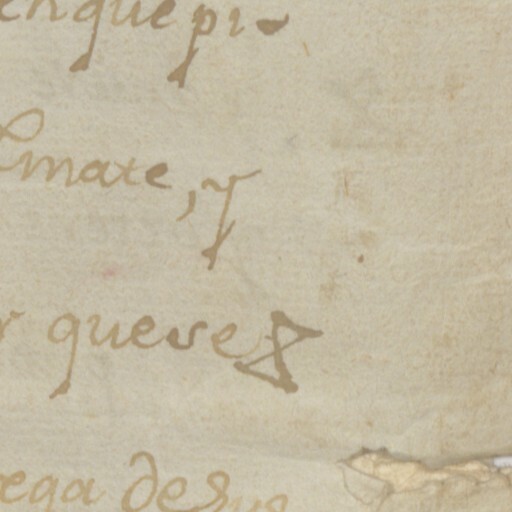 enque pi-
mate, y
r que se
ega de su